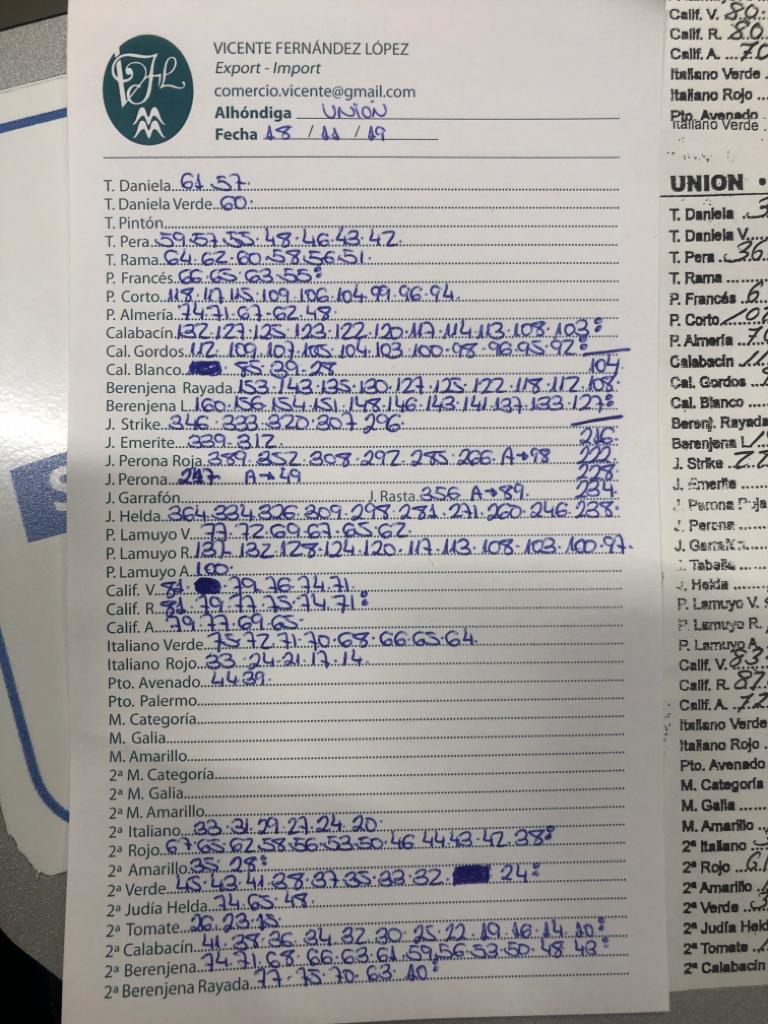 VICENTE FERNÁNDEZ LÓPEZ
Export - Import
comercio.vicente@gmail.com
Alhóndiga UNION
Fecha 18 / 11 / 19
T. Daniela 61.57.
T. Daniela Verde 60.
T. Pintón
T. Pera 59.57.55.48.46.43.42.
T. Rama 64.62.60.58.56.51.
P. Francés 66.65.63.55:
P. Corto 118.117.115.109.106.104.99.96.94.
P. Almería 74.71.67.62.48.
Calabacín 132.127.125.123.122.120.117.114.113.108.103:
Cal. Gordos 112.109.107.105.104.103.100.98.96.95.92:
Cal. Blanco 85.39.28 104
Berenjena Rayada 153.143.135.130.127.125.122.118.112.108.
Berenjena L. 160.156.154.151.148.146.143.141.137.133.127:
J. Strike 346.333.320.307.296.
J. Emerite 339.312. 216
J. Perona Roja 389.352.308.292.285.266. A→98 222
J. Perona 247 A→49 228
J. Garrafón J. Rasta 356 A→89. 234
J. Helda 364.334.326.309.298.281.271.260.246.238.
P. Lamuyo V. 77.72.69.67.65.62.
P. Lamuyo R. 137.132.128.124.120.117.113.108.103.100.97.
P. Lamuyo A. 100.
Calif. V. 81 79.76.74.71.
Calif. R. 81.79.77.75.74.71:
Calif. A. 79.77.69.65.
Italiano Verde 75.72.71.70.68.66.65.64.
Italiano Rojo 33.24.21.17.14.
Pto. Avenado 44.39.
Pto. Palermo
M. Categoría
M. Galia
M. Amarillo
2ª M. Categoría
2ª M. Galia
2ª M. Amarillo
2ª Italiano 33.31.29.27.24.20.
2ª Rojo 67.65.62.58.56.53.50.46.44.43.42.38:
2ª Amarillo 35.28:
2ª Verde 45.43.41.38.37.35.33.32. 24:
2ª Judía Helda 74.65.48.
2ª Tomate 26.23.15
2ª Calabacín 41.38.36.34.32.30.25.22.19.16.14.10:
2ª Berenjena 74.71.68.66.63.61.59.56.53.50.48.43:
2ª Berenjena Rayada 77.75.70.63.10:
Calif. V. 80
Calif. R. 80
Calif. A. 70
Italiano Verde
Italiano Rojo
Pto. Avenado
Italiano Verde
UNION •
T. Daniela
T. Daniela V.
T. Pera 36
T. Rama
P. Francés 6
P. Corto
P. Almería
Calabacín
Cal. Gordos
Cal. Blanco
Berenj. Rayada
Berenjena
J. Strike 22
J. Emerite
J. Perona Roja
J. Perona
J. Garrafón
J. Tabella
J. Helda
P. Lamuyo V.
P. Lamuyo R.
P. Lamuyo A.
Calif. V. 83
Calif. R. 87
Calif. A. 72
Italiano Verde
Italiano Rojo
Pto. Avenado
M. Categoría
M. Galia
M. Amarillo
2ª Italiano
2ª Rojo
2ª Amarillo
2ª Verde
2ª Judía Held
2ª Tomate
2ª Calabacín